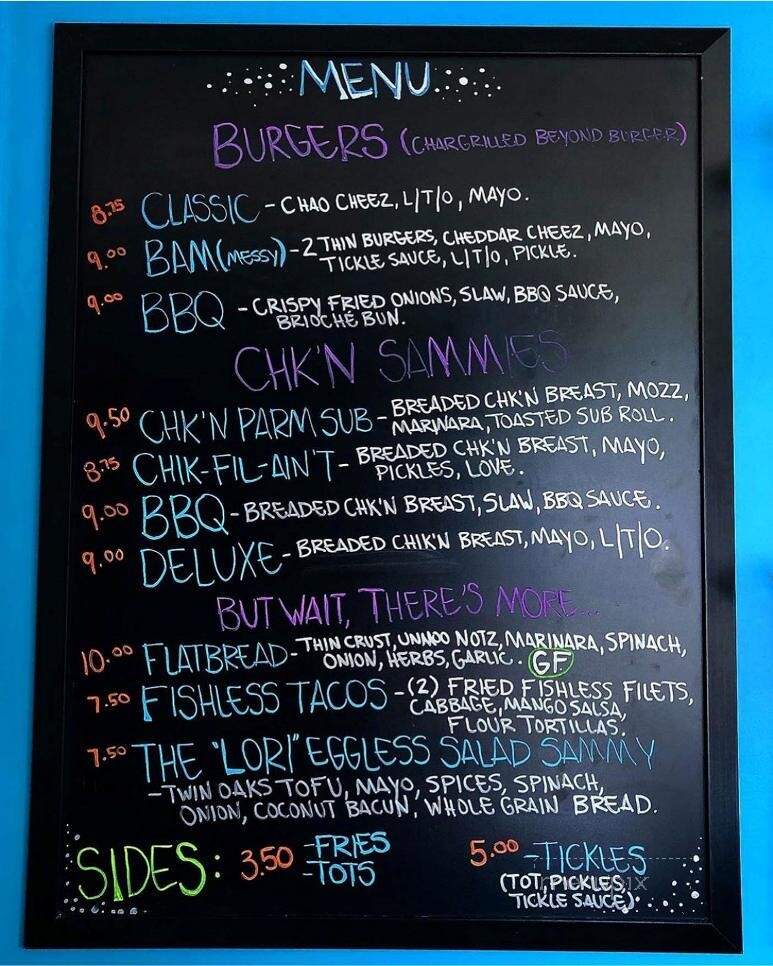 MENU
BURGERS (CHARGRILLED BEYOND BURGER)
8.75 CLASSIC - CHAO CHEEZ, L/T/O, MAYO.
9.00 BAM (MESSY) - 2 THIN BURGERS, CHEDDAR CHEEZ, MAYO,
TICKLE SAUCE, L/T/O, PICKLE.
9.00 BBQ - CRISPY FRIED ONIONS, SLAW, BBQ SAUCE,
BRIOCHE BUN.
CHK'N SAMMIES
9.50 CHK'N PARM SUB - BREADED CHK'N BREAST, MOZZ,
MARINARA, TOASTED SUB ROLL.
8.75 CHIK-FIL-AIN'T - BREADED CHK'N BREAST, MAYO,
PICKLES, LOVE.
9.00 BBQ - BREADED CHK'N BREAST, SLAW, BBQ SAUCE.
9.00 DELUXE - BREADED CHIK'N BREAST, MAYO, L/T/O.
BUT WAIT, THERE'S MORE...
10.00 FLATBREAD - THIN CRUST, UNMOO NOTZ, MARINARA, SPINACH,
ONION, HERBS, GARLIC. GF
7.50 FISHLESS TACOS - (2) FRIED FISHLESS FILETS,
CABBAGE, MANGO SALSA,
FLOUR TORTILLAS.
7.50 THE "LORI" EGGLESS SALAD SAMMY
- TWIN OAKS TOFU, MAYO, SPICES, SPINACH,
ONION, COCONUT BACUN, WHOLE GRAIN BREAD.
SIDES: 3.50 - FRIES
- TOTS
5.00 - TICKLES
(TOT, PICKLES,
TICKLE SAUCE)